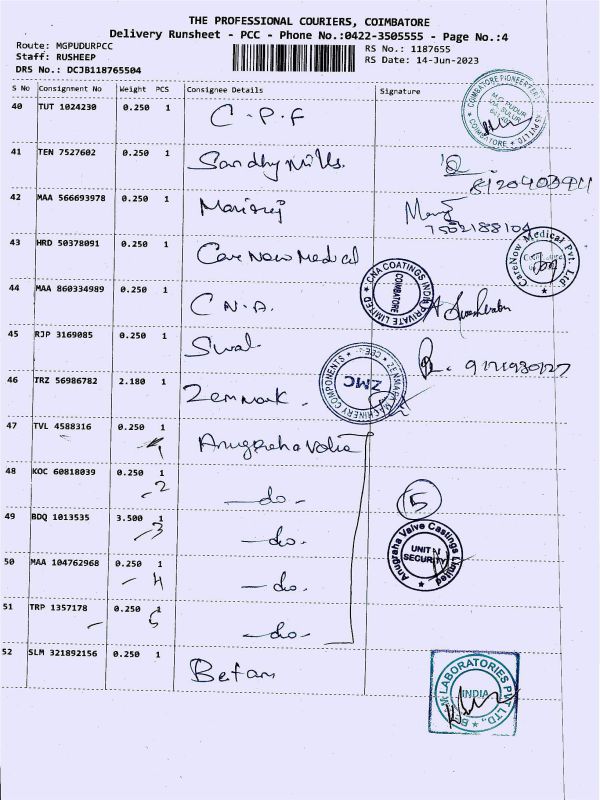 THE PROFESSIONAL COURIERS, COIMBATORE
Delivery Runsheet - PCC - Phone No.:0422-3505555 - Page No.:4
Route: MGPUDURPCC RS No.: 1187655
Staff: RUSHEEP RS Date: 14-Jun-2023
DRS No.: DCJB118765504
S No Consignment No Weight PCS Consignee Details Signature
40 TUT 1024230 0.250 1 C.P.F
COIMBATORE PIONEER
COIMBATORE
41 TEN 7527602 0.250 1 Sandhy Mills.
42 MAA 566693978 0.250 1
7502188104
43 HRD 50378091 0.250 1 Care Now Medical
CareNow Medical Pvt. Ltd
44 MAA 860334989 0.250 1 C.N.A.
CNA COATINGS INDIA PRIVATE LIMITED
COIMBATORE
45 RJP 3169085 0.250 1 Swal
46 TRZ 56986782 2.180 1 Zenmark.
ZENMARK MACHINERY COMPONENTS
ZMC
47 TVL 4588316 0.250 1 Anugraha Valve
1
48 KOC 60818039 0.250 1 -do-
-2
5
49 BDQ 1013535 3.500 1 -do-
-3
Anugraha Valve Castings Limited
UNIT-I
SECURITY
50 MAA 104762968 0.250 1 -do-
-4
51 TRP 1357178 0.250 1 -do-
- 5
52 SLM 321892156 0.250 1 Befam
LABORATORIES PVT LTD.,
INDIA